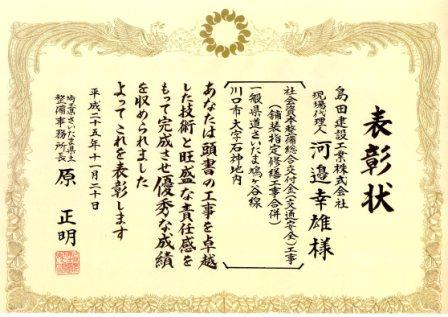 表彰状
島田建設工業株式会社
現場代理人 河邉幸雄様
社会資本整備総合交付金(交通安全)工事
(舗装指定修繕工事合併)
一般県道さいたま鳩ヶ谷線
川口市大字石神地内
あなたは頭書の工事を卓越
した技術と旺盛な責任感を
もって完成させ優秀な成績
を収められました
よってこれを表彰します
平成二十五年十一月二十日
埼玉県さいたま県土
整備事務所長 原 正明